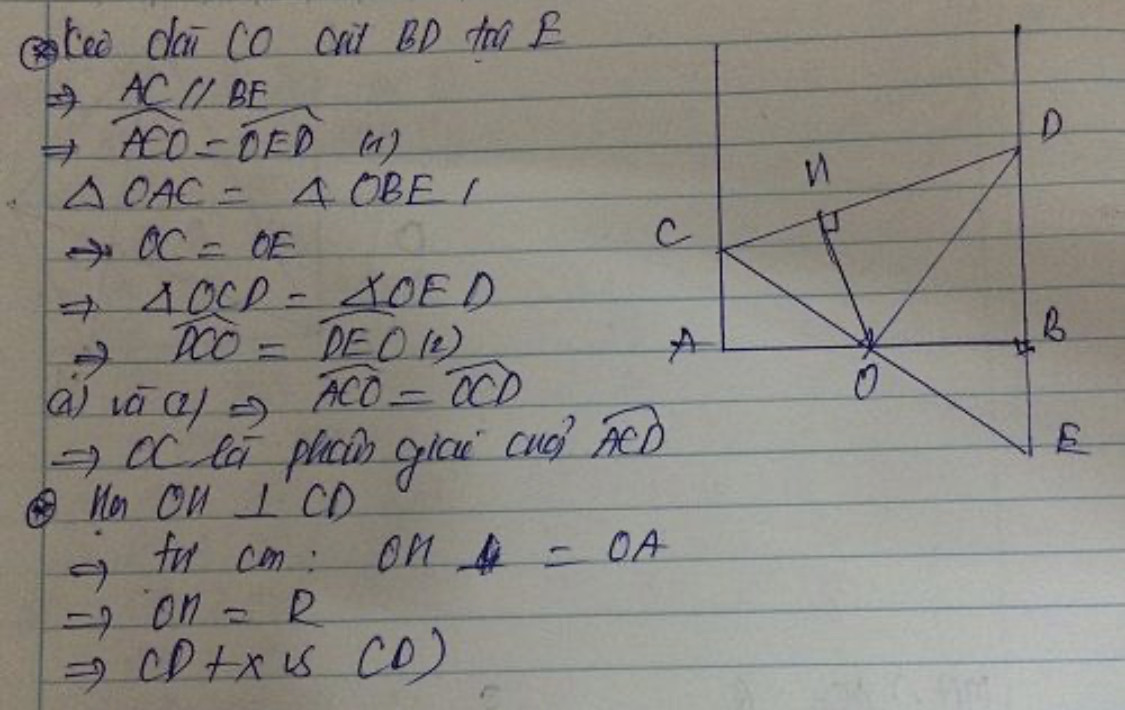 ⊛ Kéo dài CO cắt BD tại E
⇒ AC // BE
⇒ \widehat{ACO} = \widehat{OED} (1)
Δ OAC = Δ OBE
⇒ OC = OE
⇒ ΔOCD = ΔOED
⇒ \widehat{DCO} = \widehat{DEO} (2)
(1) và (2) ⇒ \widehat{ACO} = \widehat{OCD}
⇒ OC là phân giác của \widehat{ACD}
⊛ OH ⊥ CD
⇒ cm: OH = OA
⇒ OH = R
⇒ CD
D
H
C
A
B
O
E